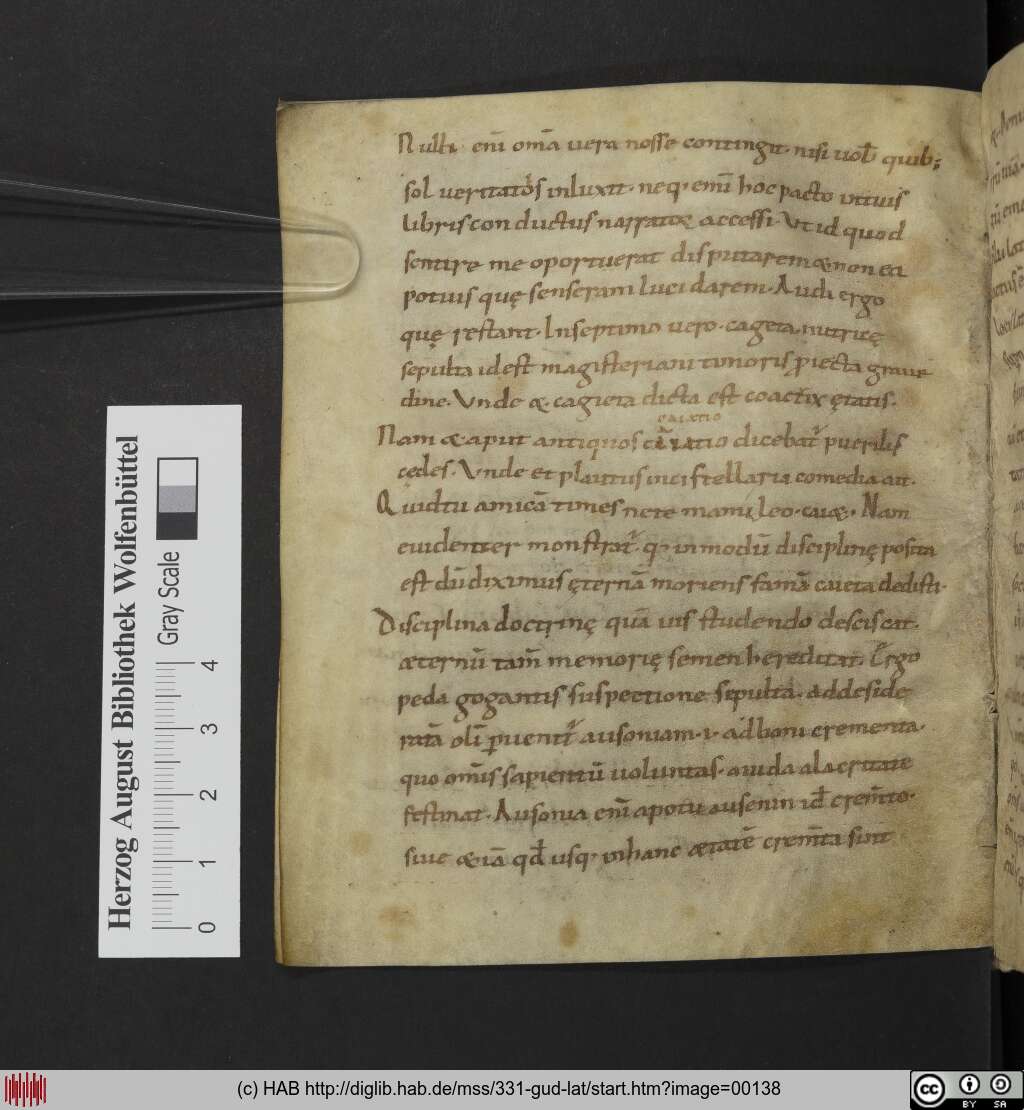 Nulli · enī om̄a vera nosse contingit · nisi uob̄ quib;
sol veritatis inluxit · neq· enī hoc pacto uiuis
libris conductus narratoe accessi · Vt id quod
sentire me oportuerat disputarem & non ea
potius quę senseram lucidarem · Audi ergo
quę restant · In septimo uero · cageta nutricę
sepulta id est magisteriani timoris p̄iecta graui
dine · Vnde & · cagieta dicta est coactix ętatis ·
caiatio
Nam & aput antiquos ciiatio dicebat̄ puerilis
cedes · Vnde et plautus in cistellaria comedia ait ·
Quid tu amicā times ne te manu leo · caiæ · Nam
euidenter monstrat̄ · q· in modū disciplinę posita
est dū diximus ęternā moriens famā caieta dedisti ·
Disciplina doctrinę quā uis studendo desciscat ·
æternū tam̄ memorię semen hereditat · Ergo
pedagogantis suspectione sepulta · ad deside
ratā olī puenit̄ ausoniam · i · ad boni crementa ·
quo om̄is sapientū uoluntas · auida alacritate
festinat · Ausonia enī apo tu ausenin id̄ crem̄to ·
siue & iā qd̄ usq· in hanc ætatē crem̄ta sunt
Herzog August Bibliothek Wolfenbüttel
Gray Scale
0 1 2 3 4
(c) HAB http://diglib.hab.de/mss/331-gud-lat/start.htm?image=00138
cc BY SA